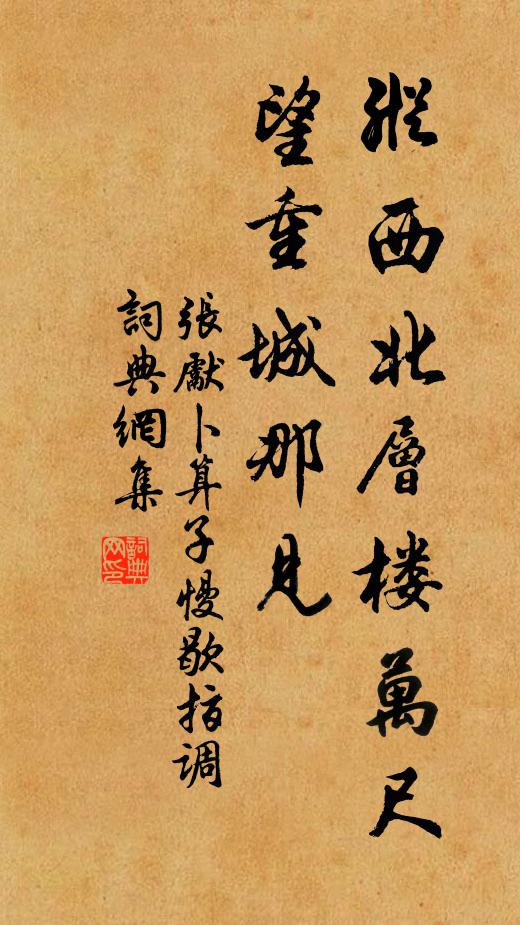 縱西北層楼萬尺
望重城那見
張獻卜算子慢歇指調
詞典網集
詞典网印